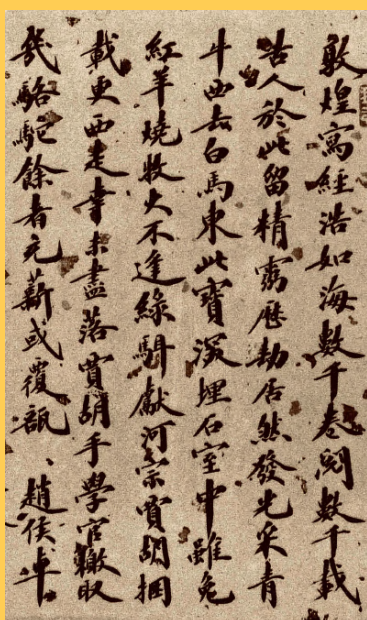 敦煌寫經浩如海數千卷閱數千載
古人於此留精靈歷劫居然發光采青
牛西去白馬東此寶深埋石室中雖免
紅羊燒牧火不逢綠駬獻河宗賈胡捆
載更西走幸未盡落賈胡手學官輦取
幾駱駝餘者充薪或覆瓿 趙侯